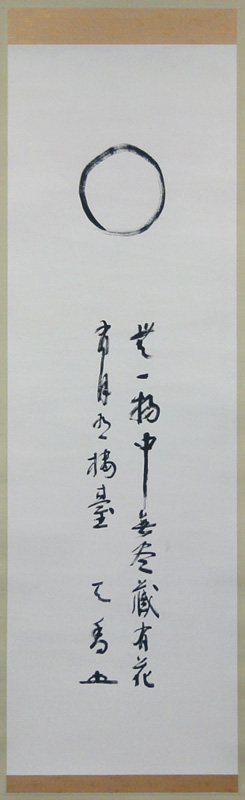 無一物中無尽蔵有花
有月有楼臺 天香